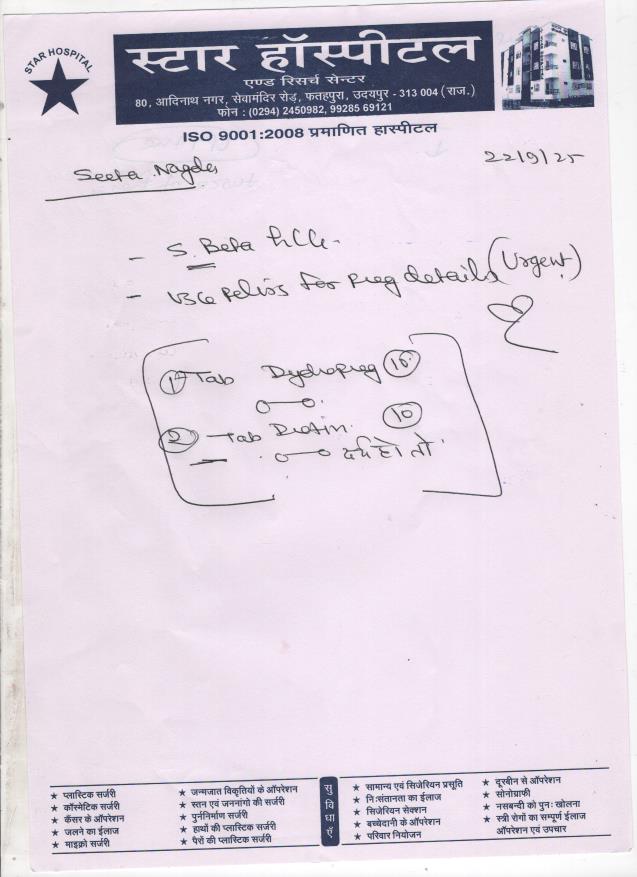 STAR HOSPITAL
स्टार हॉस्पीटल
एण्ड रिसर्च सेन्टर
80, आदिनाथ नगर, सेवामंदिर रोड़, फतहपुरा, उदयपुर - 313 004 (राज.)
फोन : (0294) 2450982, 99285 69121
ISO 9001:2008 प्रमाणित हास्पीटल
Seeta
22/9/25
- S. Beta hCG-
- USG Pelvis for Preg details (Urgent)
① Tab Dydropreg 10
② Tab 10
दर्द हो तो
★ प्लास्टिक सर्जरी
★ कॉस्मेटिक सर्जरी
★ कैंसर के ऑपरेशन
★ जलने का ईलाज
★ माइक्रो सर्जरी
★ जन्मजात विकृतियों के ऑपरेशन
★ स्तन एवं जननांगो की सर्जरी
★ पुर्ननिर्माण सर्जरी
★ हाथों की प्लास्टिक सर्जरी
★ पैरों की प्लास्टिक सर्जरी
सुविधाएँ
★ सामान्य एवं सिजेरियन प्रसूति
★ निःसंतानता का ईलाज
★ सिजेरियन सेक्शन
★ बच्चेदानी के ऑपरेशन
★ परिवार नियोजन
★ दूरबीन से ऑपरेशन
★ सोनोग्राफी
★ नसबन्दी को पुनः खोलना
★ स्त्री रोगों का सम्पूर्ण ईलाज
ऑपरेशन एवं उपचार